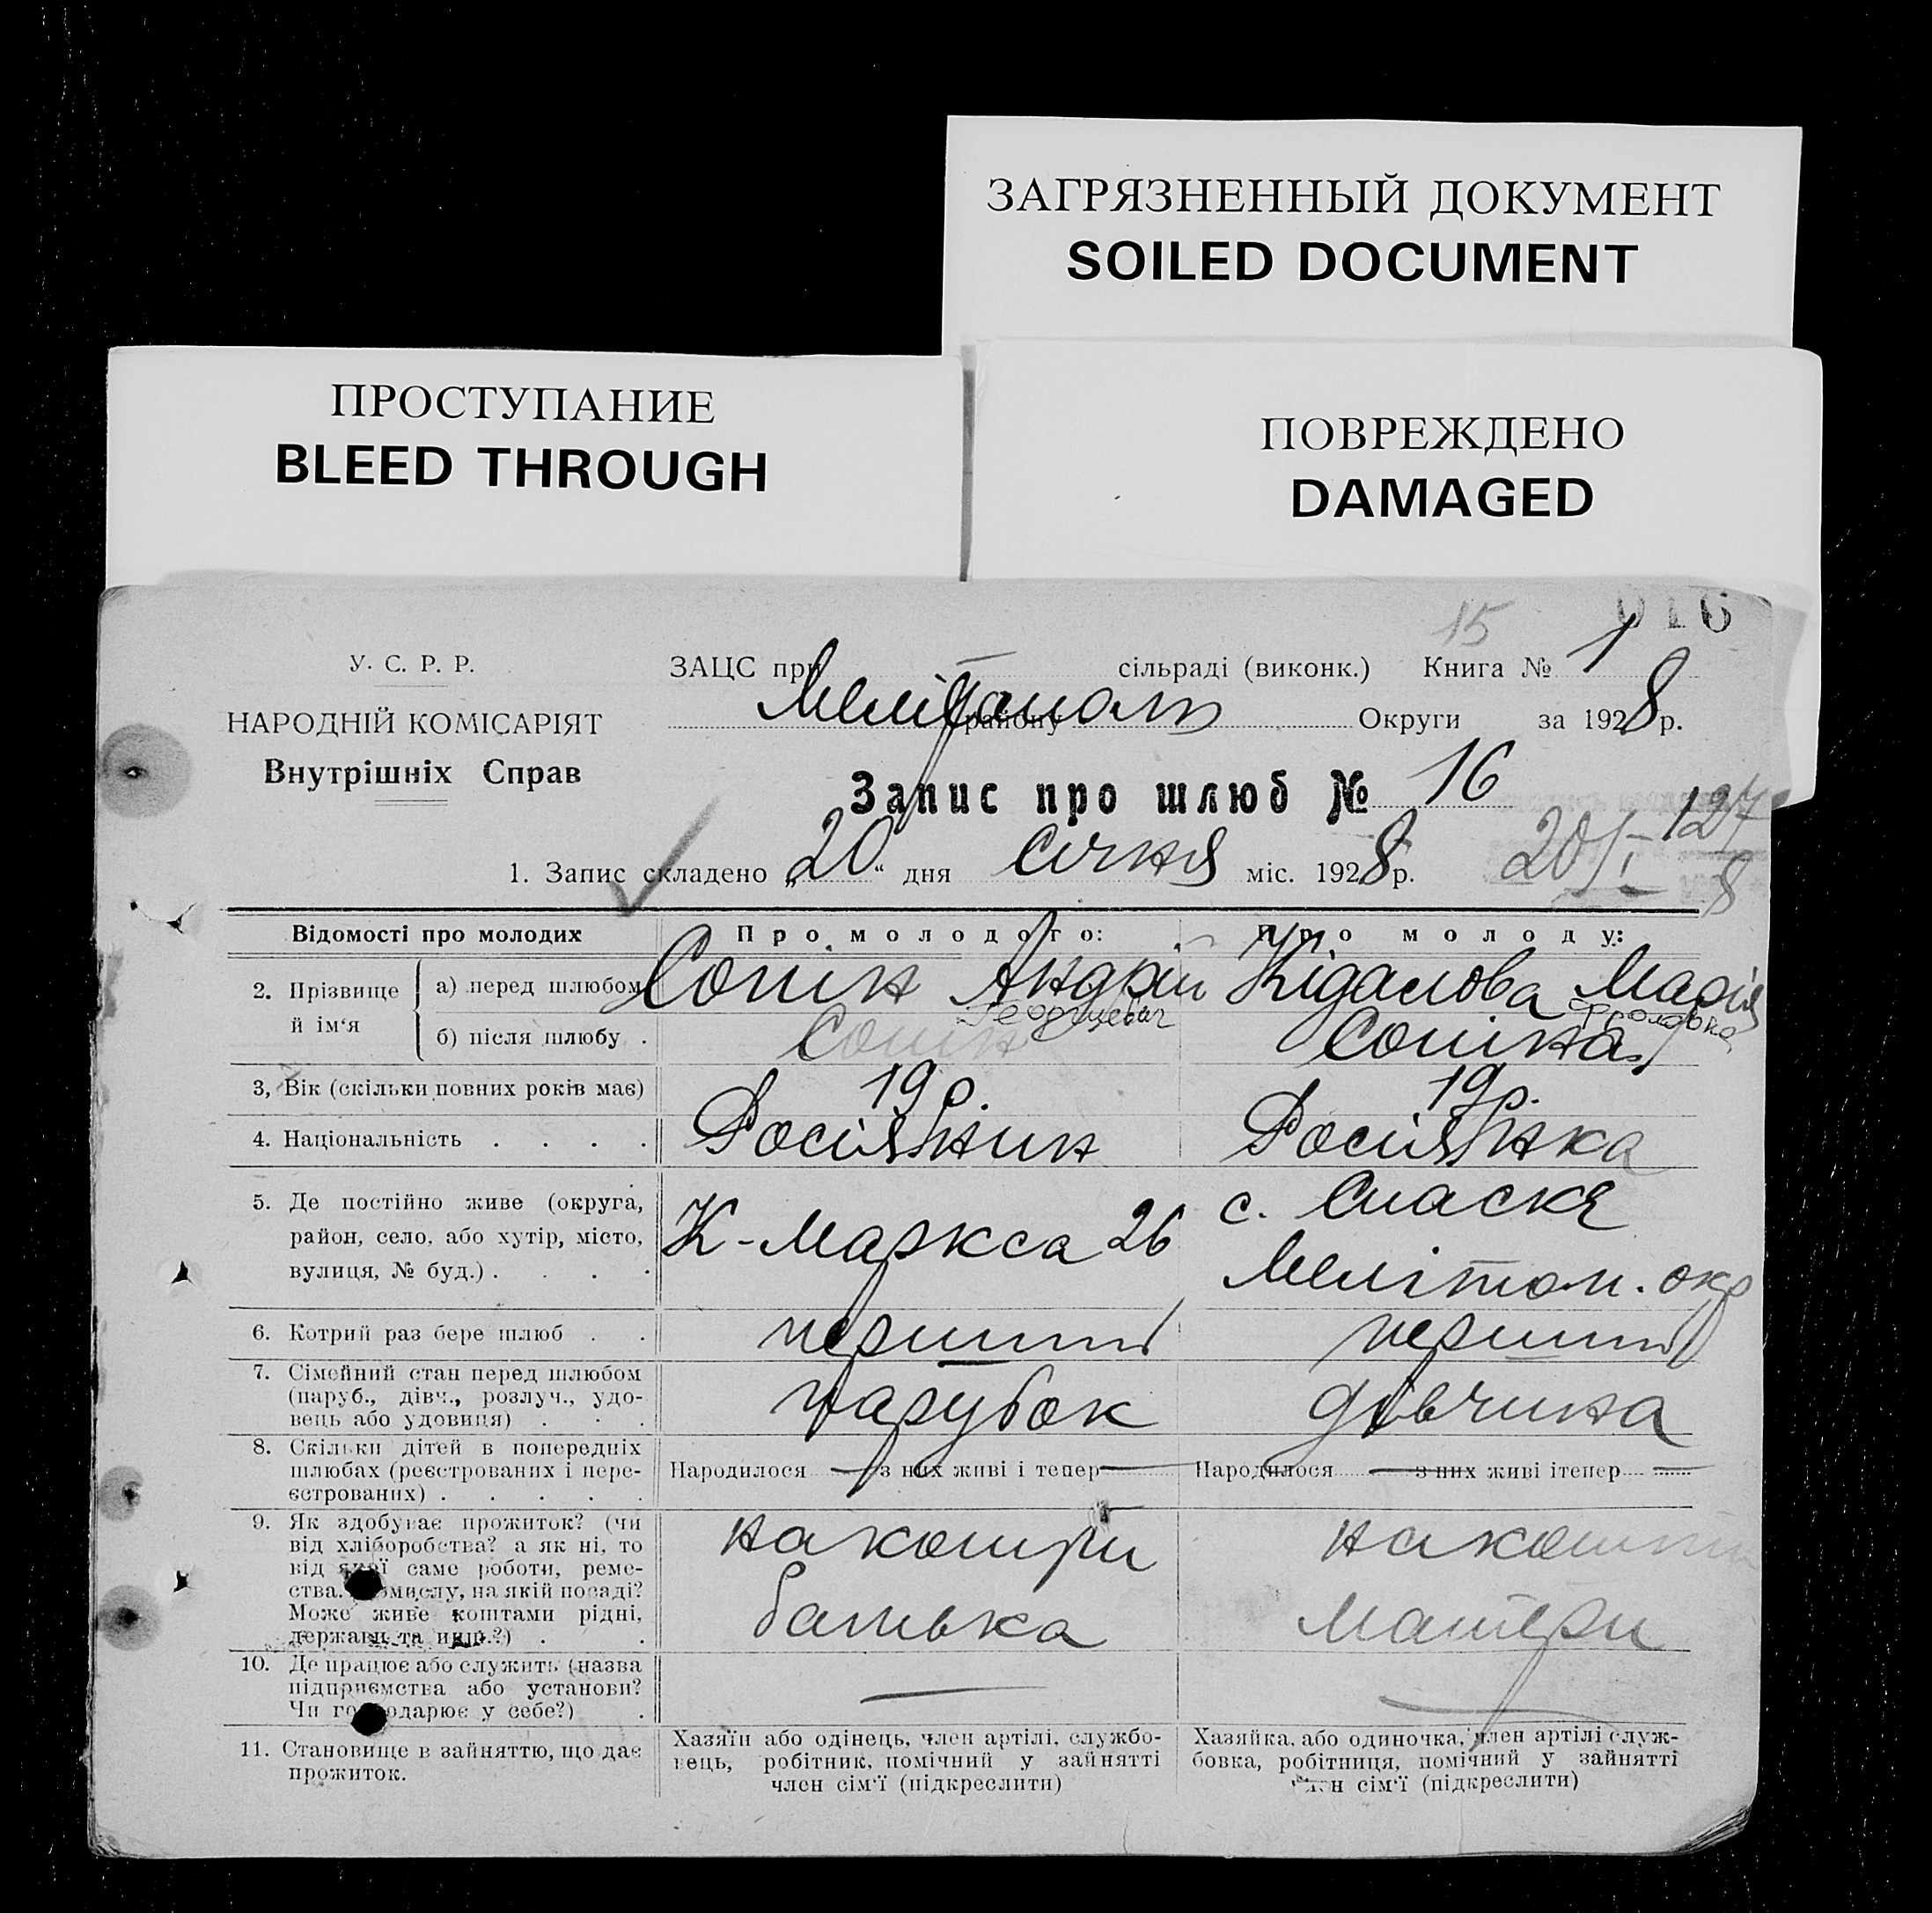 ЗАГРЯЗНЕННЫЙ ДОКУМЕНТ
SOILED DOCUMENT
ПРОСТУПАНИЕ
BLEED THROUGH
ПОВРЕЖДЕНО
DAMAGED
15 016
У. С. Р. Р.
НАРОДНІЙ КОМІСАРІЯТ
Внутрішніх Справ
ЗАЦС при сільраді (виконк.) Книга № 1
Мелітополь району Округи за 1928 р.
Запис про шлюб № 16
127
1. Запис складено „20“ дня січня міс. 1928 р. 20/I 8
Відомості про молодих Про молодого: Про молоду:
2. Прізвище й ім‘я
а) перед шлюбом Сопін Андрій Георгиевич Кідалова Марія Фроловна
б) після шлюбу . Сопін Сопіна
3, Вік (скільки повних років має) 19 р. 19 р.
4. Національність . . . . Росіянин Росіянка
5. Де постійно живе (округа,
район, село, або хутір, місто,
вулиця, № буд.) . . . .
К-Маркса 26
с. Спаскє
Мелітоп. окр
6. Котрий раз бере шлюб . . перший перший
7. Сімейний стан перед шлюбом
(паруб., дівч., розлуч., удо-
вець або удовиця) . . .
парубок дівчина
8. Скільки дітей в попередніх
шлюбах (реєстрованих і нере-
єстрованих) . . . . .
Народилося — з них живі і тепер —
Народилося — з них живі ітепер —
9. Як здобуває прожиток? (чи
від хліборобства? а як ні, то
від якої саме роботи, реме-
ства. на якій посаді?
Може живе коштами рідні,
держави та инш.?) . .
на кошти
батька
на кошти
матери
10. Де працює або служить (назва
підприємства або установи?
Чи господарює у себе?) .
— —
11. Становище в зайняттю, що дає
прожиток.
Хазяїн або одінець, член артілі, службо-
вець, робітник, помічний у зайнятті
член сім‘ї (підкреслити)
Хазяйка, або одиночка, член артілі служ-
бовка, робітниця, помічний у зайнятті
член сім‘ї (підкреслити)